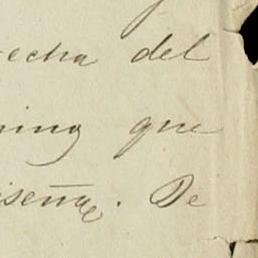 echa del
ning que
iseñe. De